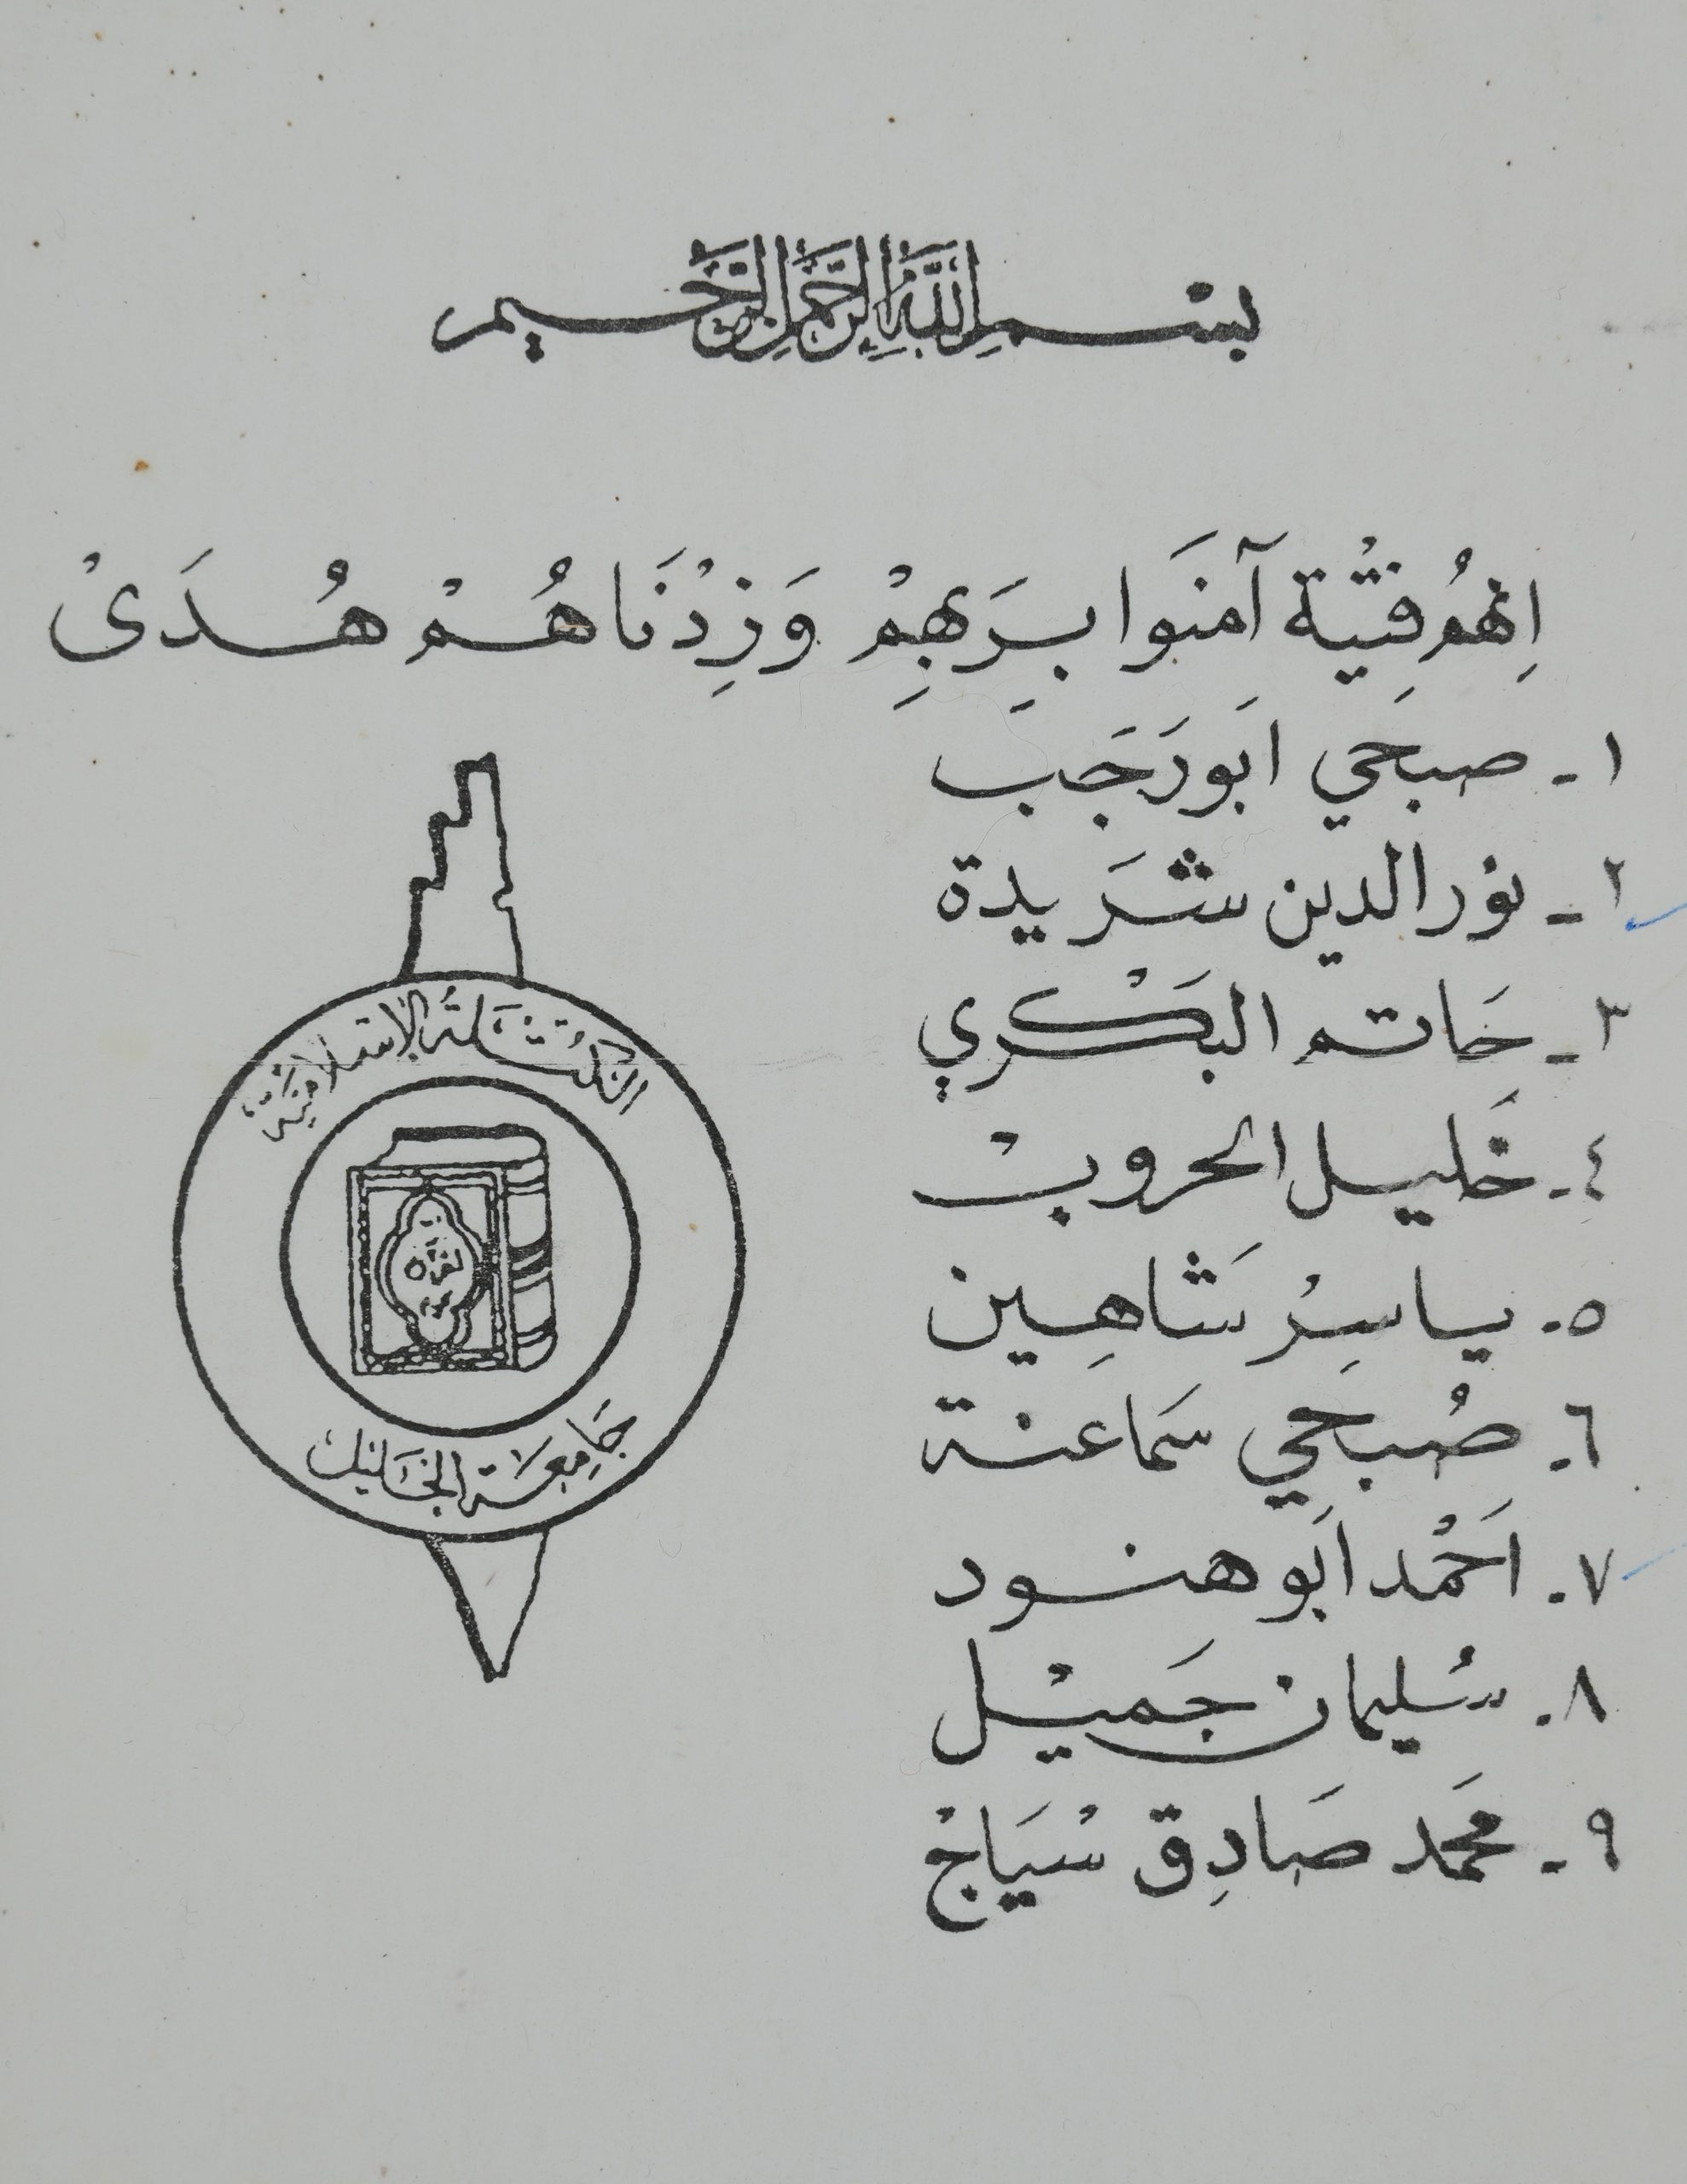 بِسْمِ اللَّهِ الرَّحْمَنِ الرَّحِيمِ
اِنهُم فِتْيَة آمنَوا بِرَبِهِمْ وَزِدْنَاهُمْ هُدَىْ
١- صبحَي ابَورَجَب
٢- نورالدين شَريدة
٣- حَاتم البَكْري
٤- خَليل الحروبْ
٥- ياسِرْ شَاهِين
٦- صُبحَي سَماعنة
٧- احَمْد ابَو هنود
٨- سُليمان جَميْل
٩- محَمد صَادِق سْيَاجْ
الكتلة الإسلامية
القرآن
جَامِعَة الخَليل